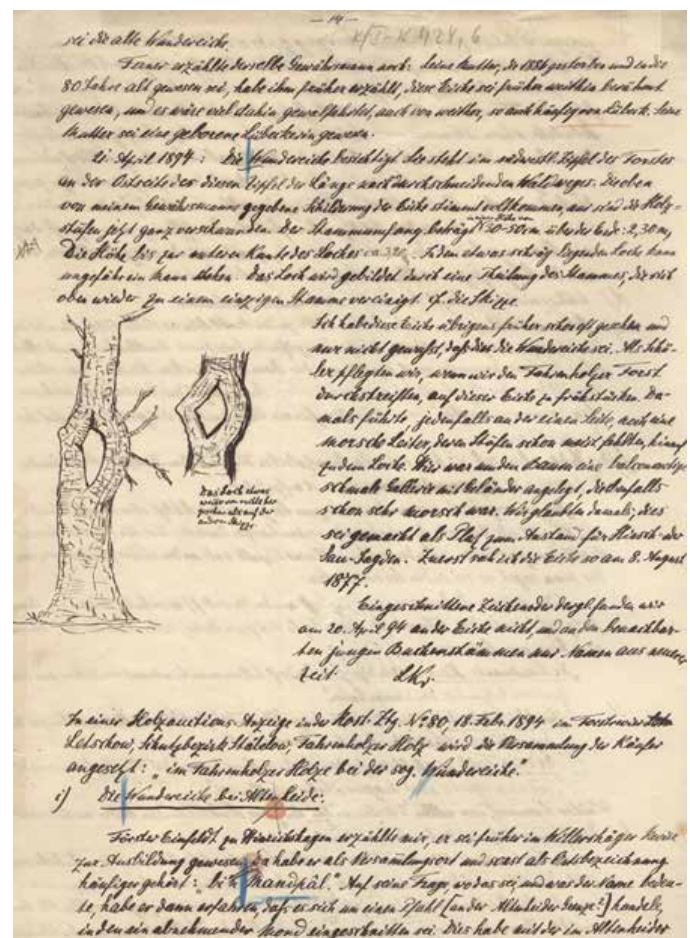 — 14 —
K/I-K 428, 6
sei die alte Wundereiche.
Ferner erzählte derselbe Gewährsmann noch: Seine Mutter, die 1886 gestorben und in die
80 Jahre alt gewesen sei, habe ihm früher erzählt, diese Eiche sei früher weithin berühmt
gewesen, und es wäre viel dahin gewallfahrtet, auch von weither, so auch häufig von Lübeck. Seine
Mutter sei eine geborene Lübeckerin gewesen.
21 April 1894: Die Wundereiche besichtigt. Sie steht im südwestl. Zipfel des Forstes
an der Ostseite des diesen Zipfel der Länge nach durchschneidenden Waldweges. Die oben
von meinem Gewährsmanne gegebene Schilderung der Eiche stimmt vollkommen, nur sind die Holz-
stufen jetzt ganz verschwunden. Der Stammumfang beträgt in einer Höhe von 30-50 cm über der Erde: 2,30 m,
Die Höhe bis zur unteren Kante des Loches ca 320. In dem etwas schräg liegenden Loche kann
ungefähr ein Mann stehen. Das Loch wird gebildet durch eine Theilung des Stammes, die sich
oben wieder zu einem einzigen Stamme vereinigt cf. die Skizze.
Ich habe diese Eiche übrigens früher schon oft gesehen und
nur nicht gewußt, daß dies die Wundereiche sei. Als Schü-
ler pflegten wir, wenn wir den Fahrenholzer Forst
durchstreiften, auf dieser Eiche zu frühstücken. Da-
mals führte, jedenfalls an der einen Seite, noch eine
morsche Leiter, deren Stufen schon meist fehlten, hinauf
zu dem Loche. Hier war um den Baum eine balconartige
schmale Gallerie mit Geländer angelegt, die ebenfalls
schon sehr morsch war. Wir glaubten damals, dies
sei gemacht als Platz zum Anstand für Hirsch- oder
Sau-Jagden. Zuerst sah ich die Eiche so am 8. August
1877.
Das Loch etwas
weiter von rechts her
gesehen als auf der
andern Skizze
Eingeschnittene Zeichen oder dergl. fanden wir
am 20. April 94 an der Eiche nicht, und an den benachbar-
ten jungen Buchenstämmen nur Namen aus neuerer
Zeit. LKr.
In einer Holzauctions-Anzeige in der Rost. Ztg. No 80, 18. Febr. 1894 im Forstrevier
Letschow, Schutzbezirk Stäbelow, Fahrenholzer Holz wird die Versammlung der Käufer
angesetzt: "im Fahrenholzer Holze bei der sog. Wundereiche."
i) Die Wundereiche bei Altenheide.
Förster Einfeldt zu Hinrichshagen erzählte mir, er sei früher im Willershäger Revier
zur Ausbildung gewesen, da habe er als Versammlungsort und sonst als Ortsbezeichnung
häufiger gehört: "bi'n Mandpål." Auf seine Frage, wo das sei, und was der Name bedeu-
te, habe er dann erfahren, daß es sich um einen Pfahl (an der Altenheider Grenze?) handele,
in den ein abnehmender Mond eingeschnitten sei. Dies habe mit der im Altenheider